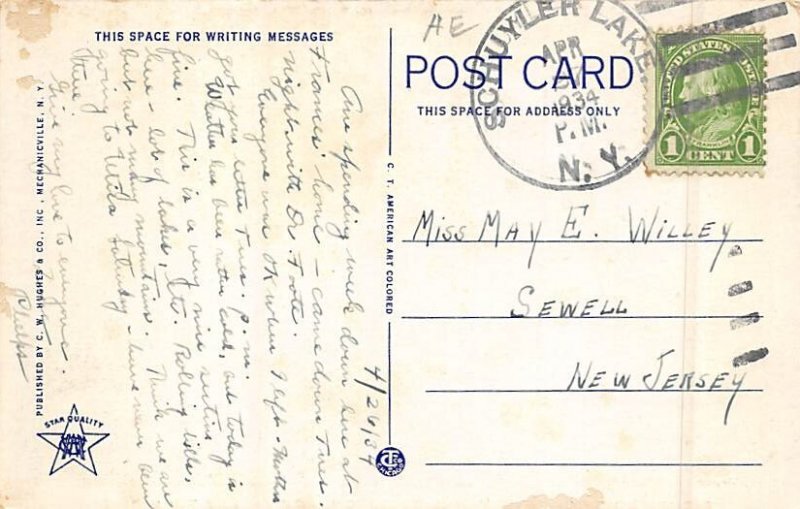 THIS SPACE FOR WRITING MESSAGES
AE
POST CARD
THIS SPACE FOR ADDRESS ONLY
SCHUYLER LAKE
APR
1934
P.M.
N.Y.
UNITED STATES POSTAGE
FRANKLIN
1 CENT 1
4/26/34
Am spending week down here at
Frances' home – came down Tues.
night with Dr. Foote.
Everyone was OK when I left. Mother
got your letter Tues. p.m.
Weather has been rather cold, but today is
fine. This is a very nice section
here – lots of lakes, etc. Rolling hills,
but not many mountains. Think we are
going to Utica Saturday – have never been
there.
Give my love to everyone.
Phelps
Miss May E. Willey
Sewell
New Jersey
PUBLISHED BY C. W. HUGHES & CO., INC., MECHANICVILLE, N. Y.
C. T. AMERICAN ART COLORED
STAR QUALITY
CHICAGO